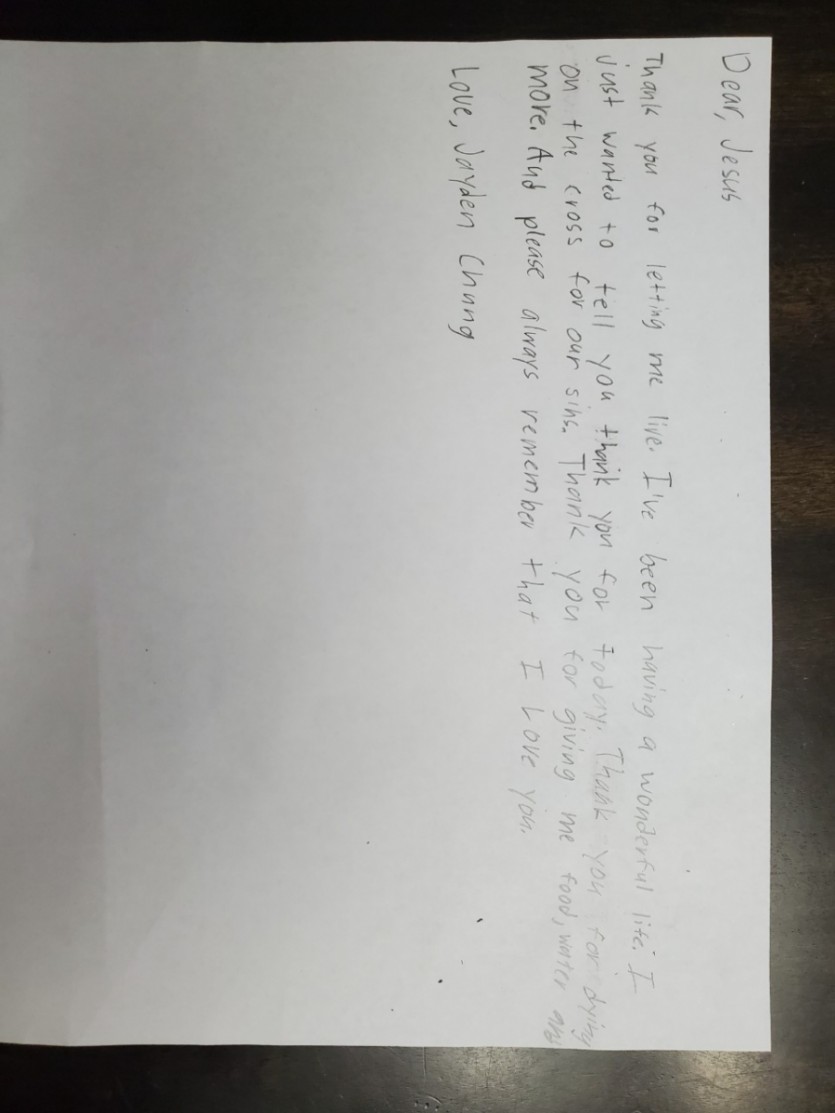 Dear, Jesus
Thank you for letting me live. I've been having a wonderful life. I
just wanted to tell you thank you for today. Thank you for dying
on the cross for our sins. Thank you for giving me food, water and
more. And please always remember that I Love you.
Love, Jayden Chung